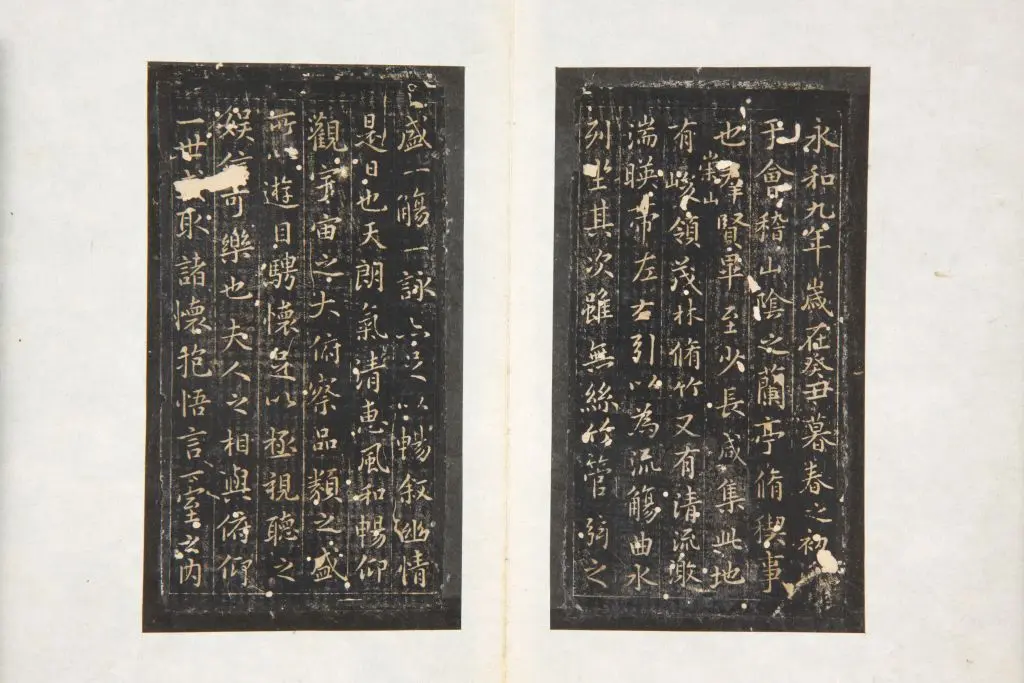 永和九年歲在癸丑暮春之初
于會稽山陰之蘭亭脩稧事
也群賢畢至少長咸集此地
有崇山峻領茂林脩竹又有清流激
湍暎帶左右引以為流觴曲水
列坐其次雖無絲竹管弦之
盛一觴一詠亦足以暢叙幽情
是日也天朗氣清惠風和暢仰
觀宇宙之大俯察品類之盛
所以遊目騁懷足以極視聽之
娛信可樂也夫人之相與俯仰
一世或取諸懷抱悟言一室之內